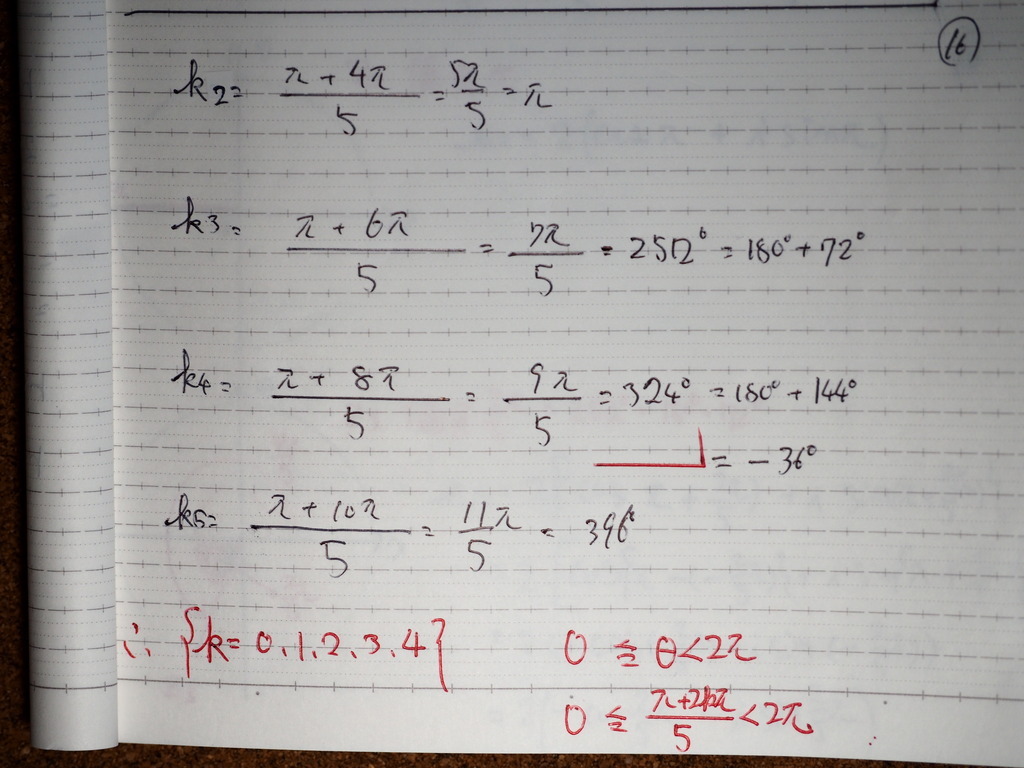 ⑯
k2= (π + 4π)/5 = 5π/5 = π
k3= (π + 6π)/5 = 7π/5 = 252° = 180° + 72°
k4= (π + 8π)/5 = 9π/5 = 324° = 180° + 144°
= - 36°
k5= (π + 10π)/5 = 11π/5 = 396°
∴ {k= 0, 1, 2, 3, 4}
0 ≦ θ < 2π
0 ≦ (π+2kπ)/5 < 2π